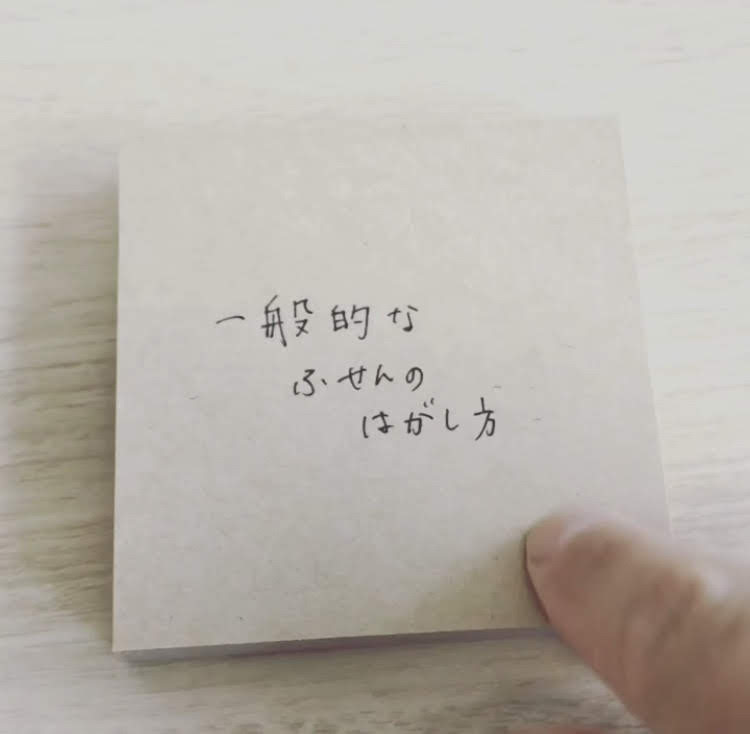 一般的な
ふせんの
はがし方